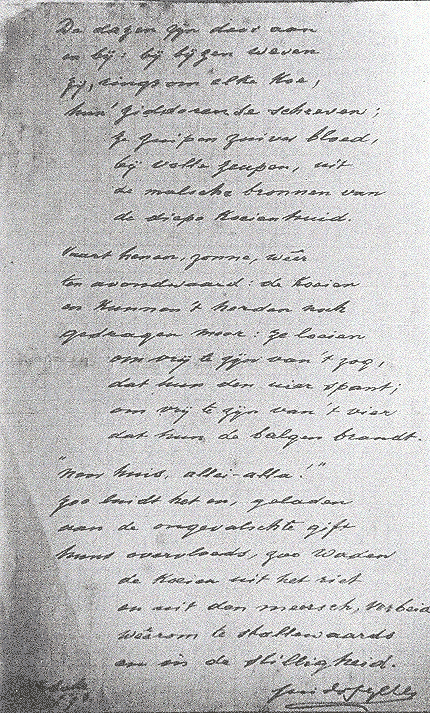 De dazen zijn daar aan
en bij: bij bijzen weven
zij, rings om elke koe,
hun' zidderende schreven;
ze zuipen zuiver bloed,
bij volle zeupen, uit
de malsche bronnen van
de diepe koeienhuid.
Vaart henen, zonne, wêer
ten avondwaard: de koeien
en kunnen 't herden noch
gedragen meer: ze loeien
om vrij te zijn van 't zog,
dat hun den uier spant;
om vrij te zijn van 't vier
dat hun de balgen brandt.
"Naar huis, allei-alla!"
zoo luidt het en, geladen
van de ongevalschte gift
huns overvloeds, zoo waden
de koeien uit het riet
en uit den meersch, verbeid
wêerom te stallewaards
en in de stilligheid.
Guido Gezelle